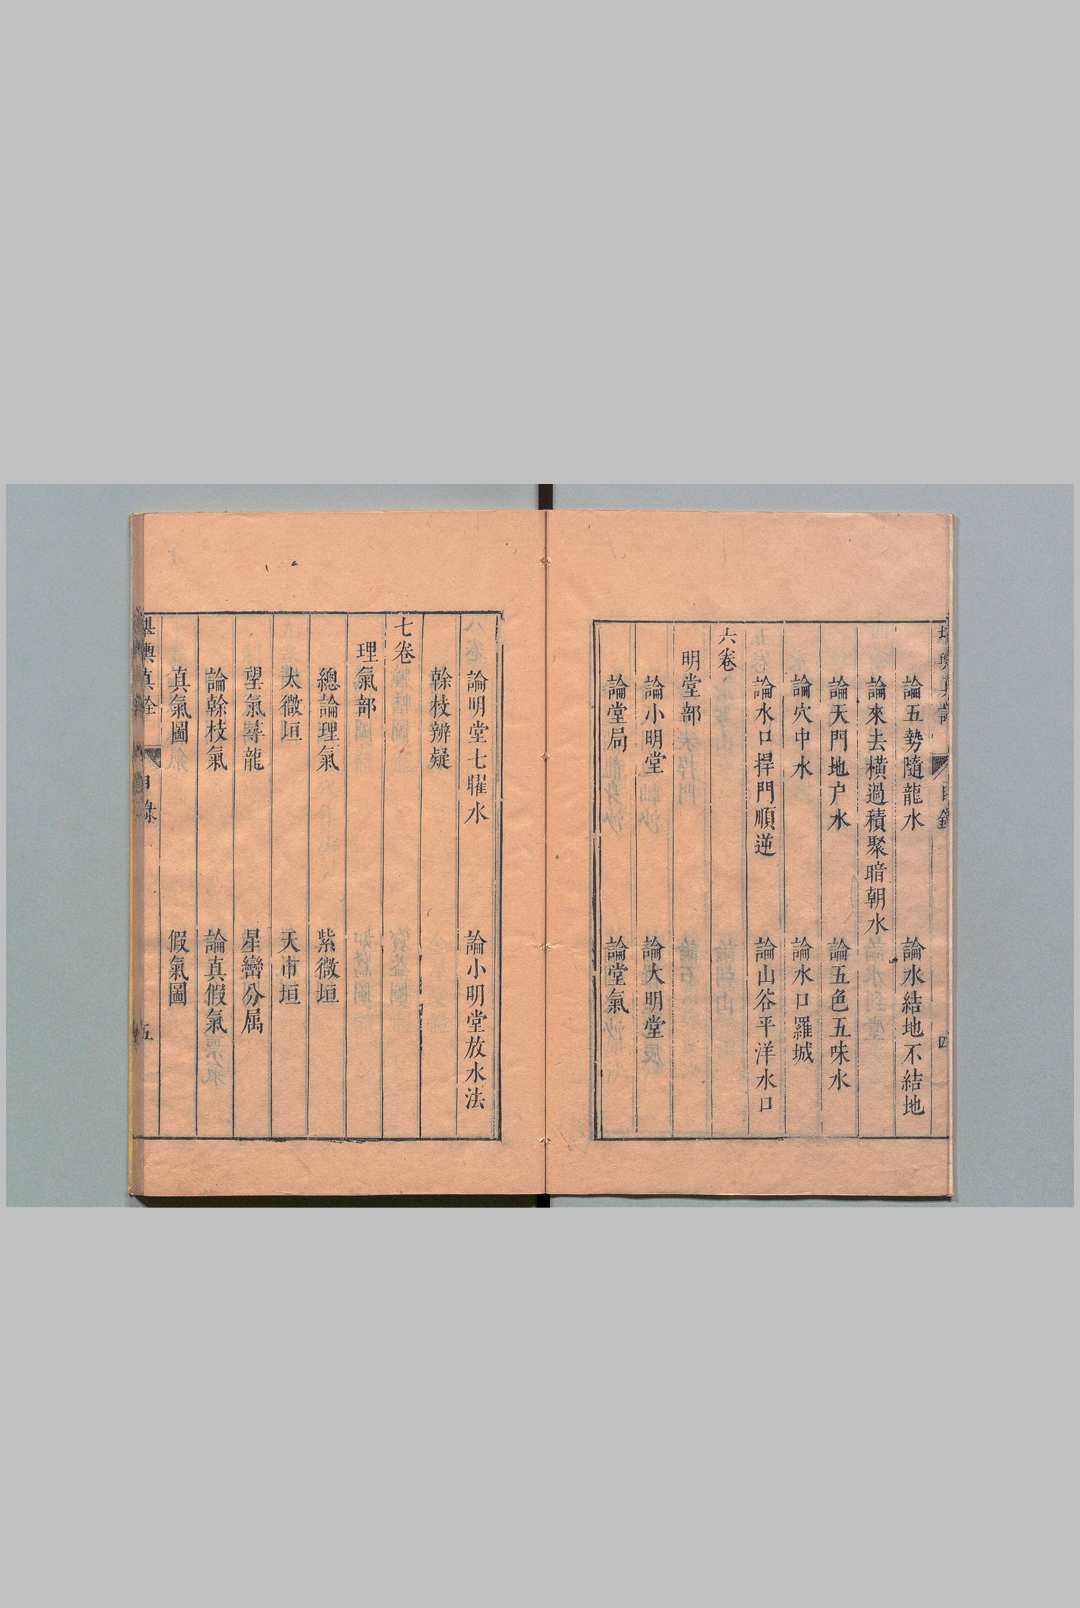 論五勢隨龍水　論水結地不結地
論來去橫過積聚暗朝水
論天門地户水　論五色五味水
論穴中水　論水口羅城
論水口捍門順逆　論山谷平洋水口
六卷
明堂部
論小明堂　論大明堂
論堂局　論堂氣
論明堂七曜水　論小明堂放水法
榦枝辨疑
七卷
理氣部
總論理氣　紫微垣
太微垣　天市垣
望氣尋龍　星巒分属
論榦枝氣　論真假氣
真氣圖　假氣圖
堪輿真詮　目錄　五